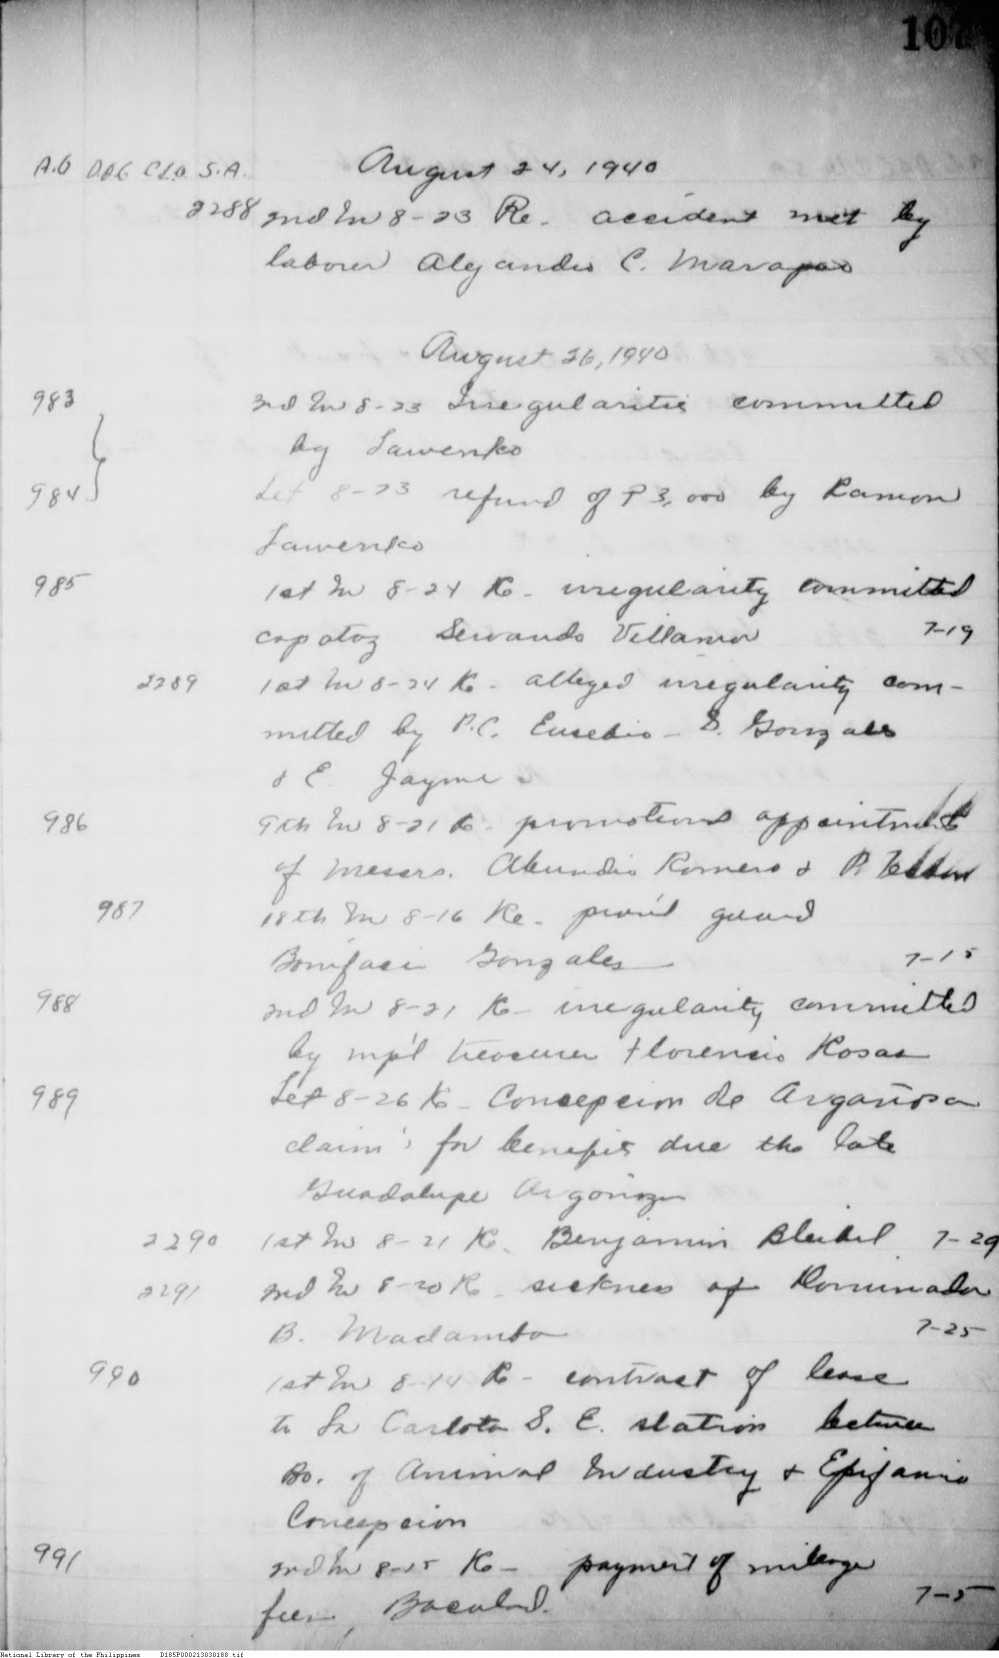 107
A.G DAG CLO. S.A. August 24, 1940
2288 2nd In 8-23 Re. accident met by
laborer Alejandro C. Marapao
August 26, 1940
983 3rd In 8-23 Irregularities committed
by Lawenko
984 Let 8-23 refund of P3,000 by Ramon
Lawenko
985 1st In 8-24 Re - irregularity committed
capataz Servando Villamor 7-19
2289 1st In 8-24 Re - alleged irregularity com-
mitted by P.C. Eusebio - S. Gonzales
& E. Jayme
986 9th In 8-21 Re - promotions appointment
of Messrs. Abundio Romero & P.
987 18th In 8-16 Re - prov'l guard
Bonifaci Gonzales 7-15
988 2nd In 8-21 Re - irregularity committed
by mp'l treasurer Florencio Rosas
989 Let 8-26 Re - Concepcion de Argañosa
claim's for benefits due the late
Guadalupe
2290 1st In 8-21 Re. Benjamin 7-29
2291 2nd In 8-20 Re. sickness of Dominador
B. Madamba 7-25
990 1st In 8-14 Re - contract of lease
to La Carlota S. E. station between
Bo. of Animal Industry & Epifanio
Concepcion
991 2nd In 8-15 Re - payment of mileage
fees, Bacolod. 7-5
National Library of the Philippines D185P000213030188.tif